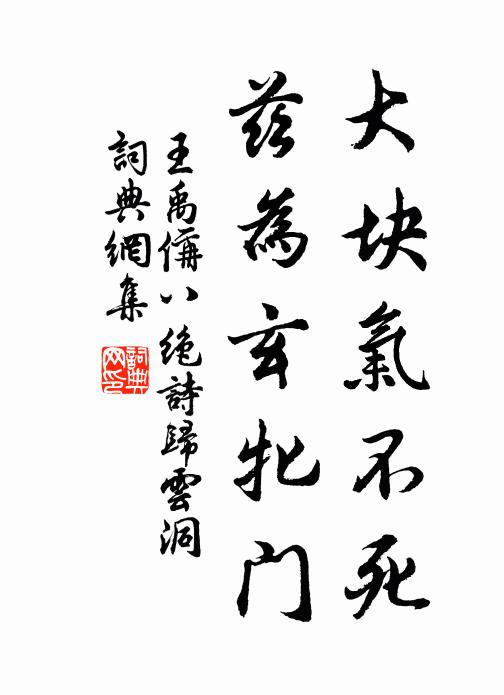 大块氣不死
茲為玄牝门
王禹偁八絶詩歸雲洞
詞典網集
詞典
网印